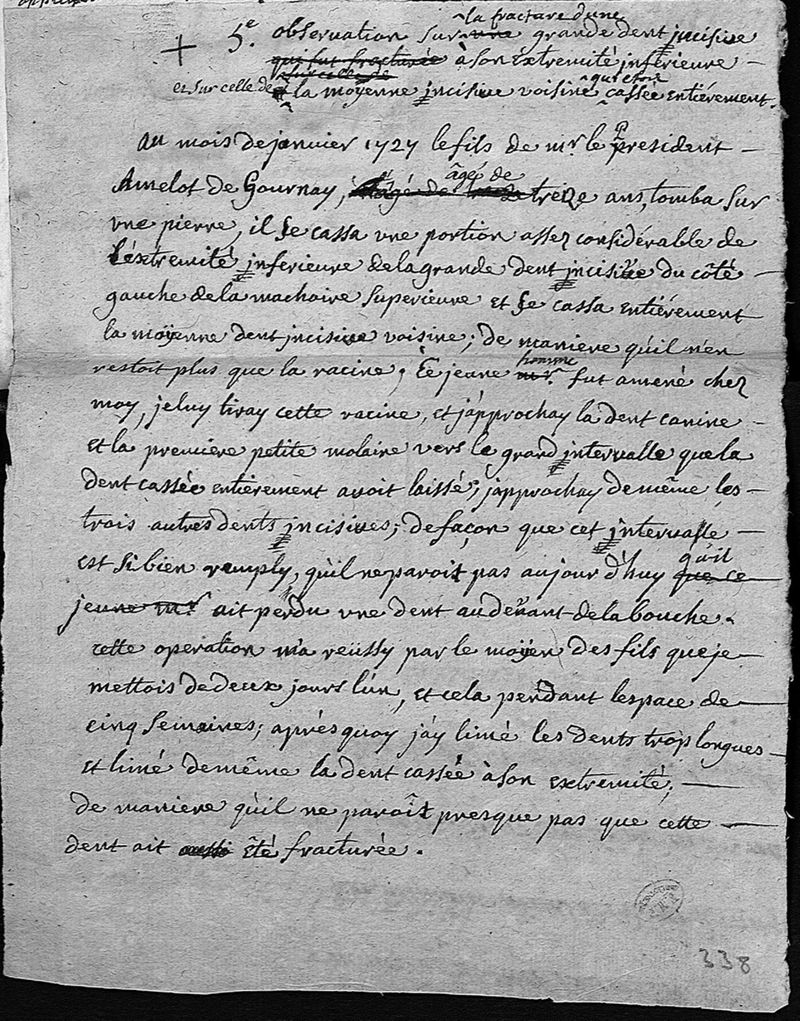 + 5.e observation sur la fracture d'une grande dent jncisive
qui fut fracturée à son extremité jnferieure
et sur celle de la moyenne jncisive voisine qui etoit cassée entiérement.
au mois de janvier 1727 le fils de mr. le president
Amelot de Gournay, âgé de treize ans, tomba sur
vne pierre, il se cassa vne portion assez considérable de
l'éxtremité jnferieure de la grande dent jncisive du côté
gauche de la machoire superieure et se cassa entiérement
la moÿenne dent jncisive voisine; de maniere qu'il n'en
restoit plus que la racine; Ce jeune mr. homme fut amené chez
moy, je luy tiray cette racine, et j'approchay la dent canine
et la premiere petite molaire vers le grand jntervalle que la
dent cassée entiérement avoit laissé; j'approchay de même les
trois autres dents jncisives; de façon que cet jntervalle
est si bien remply, qu'il ne paroit pas aujour d'huy que ce qu'il
jeune mr. ait perdu vne dent au devant de la bouche.
cette operation m'a réussy par le moÿen des fils que je
mettois de deux jours l'ún, et cela pendant l'espace de
cinq semaines; aprés quoy j'áy limé les dents trop longues
et limé de même la dent cassée à son extremité;
de maniere qu'il ne paroît presque pas que cette
dent ait aussi été fracturée.
338